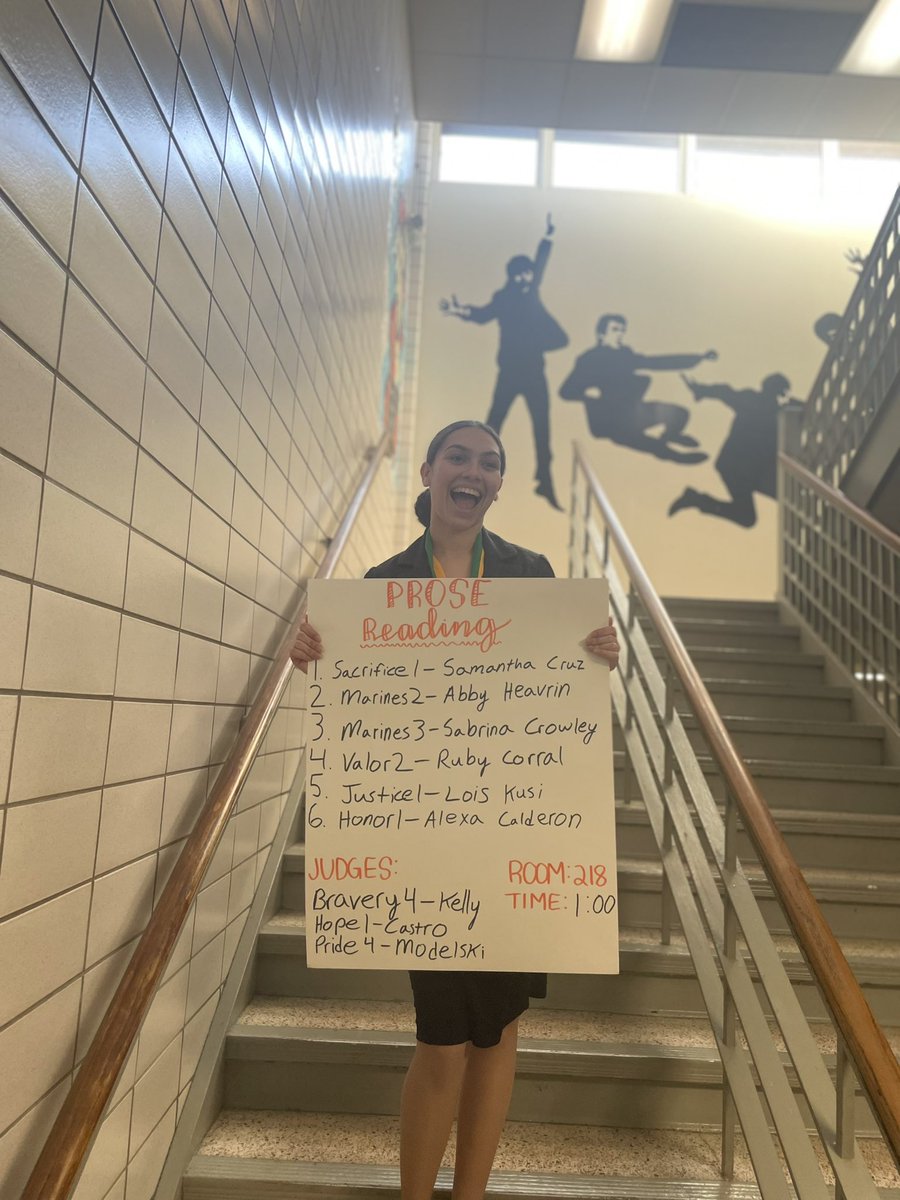 PROSE
Reading
1. Sacrifice1 - Samantha Cruz
2. Marines2 - Abby Heavrin
3. Marines3 - Sabrina Crowley
4. Valor2 - Ruby Corral
5. Justice1 - Lois Kusi
6. Honor1 - Alexa Calderon
JUDGES:
Bravery4 - Kelly
Hope1 - Castro
Pride4 - Modelski
ROOM: 218
TIME: 1:00